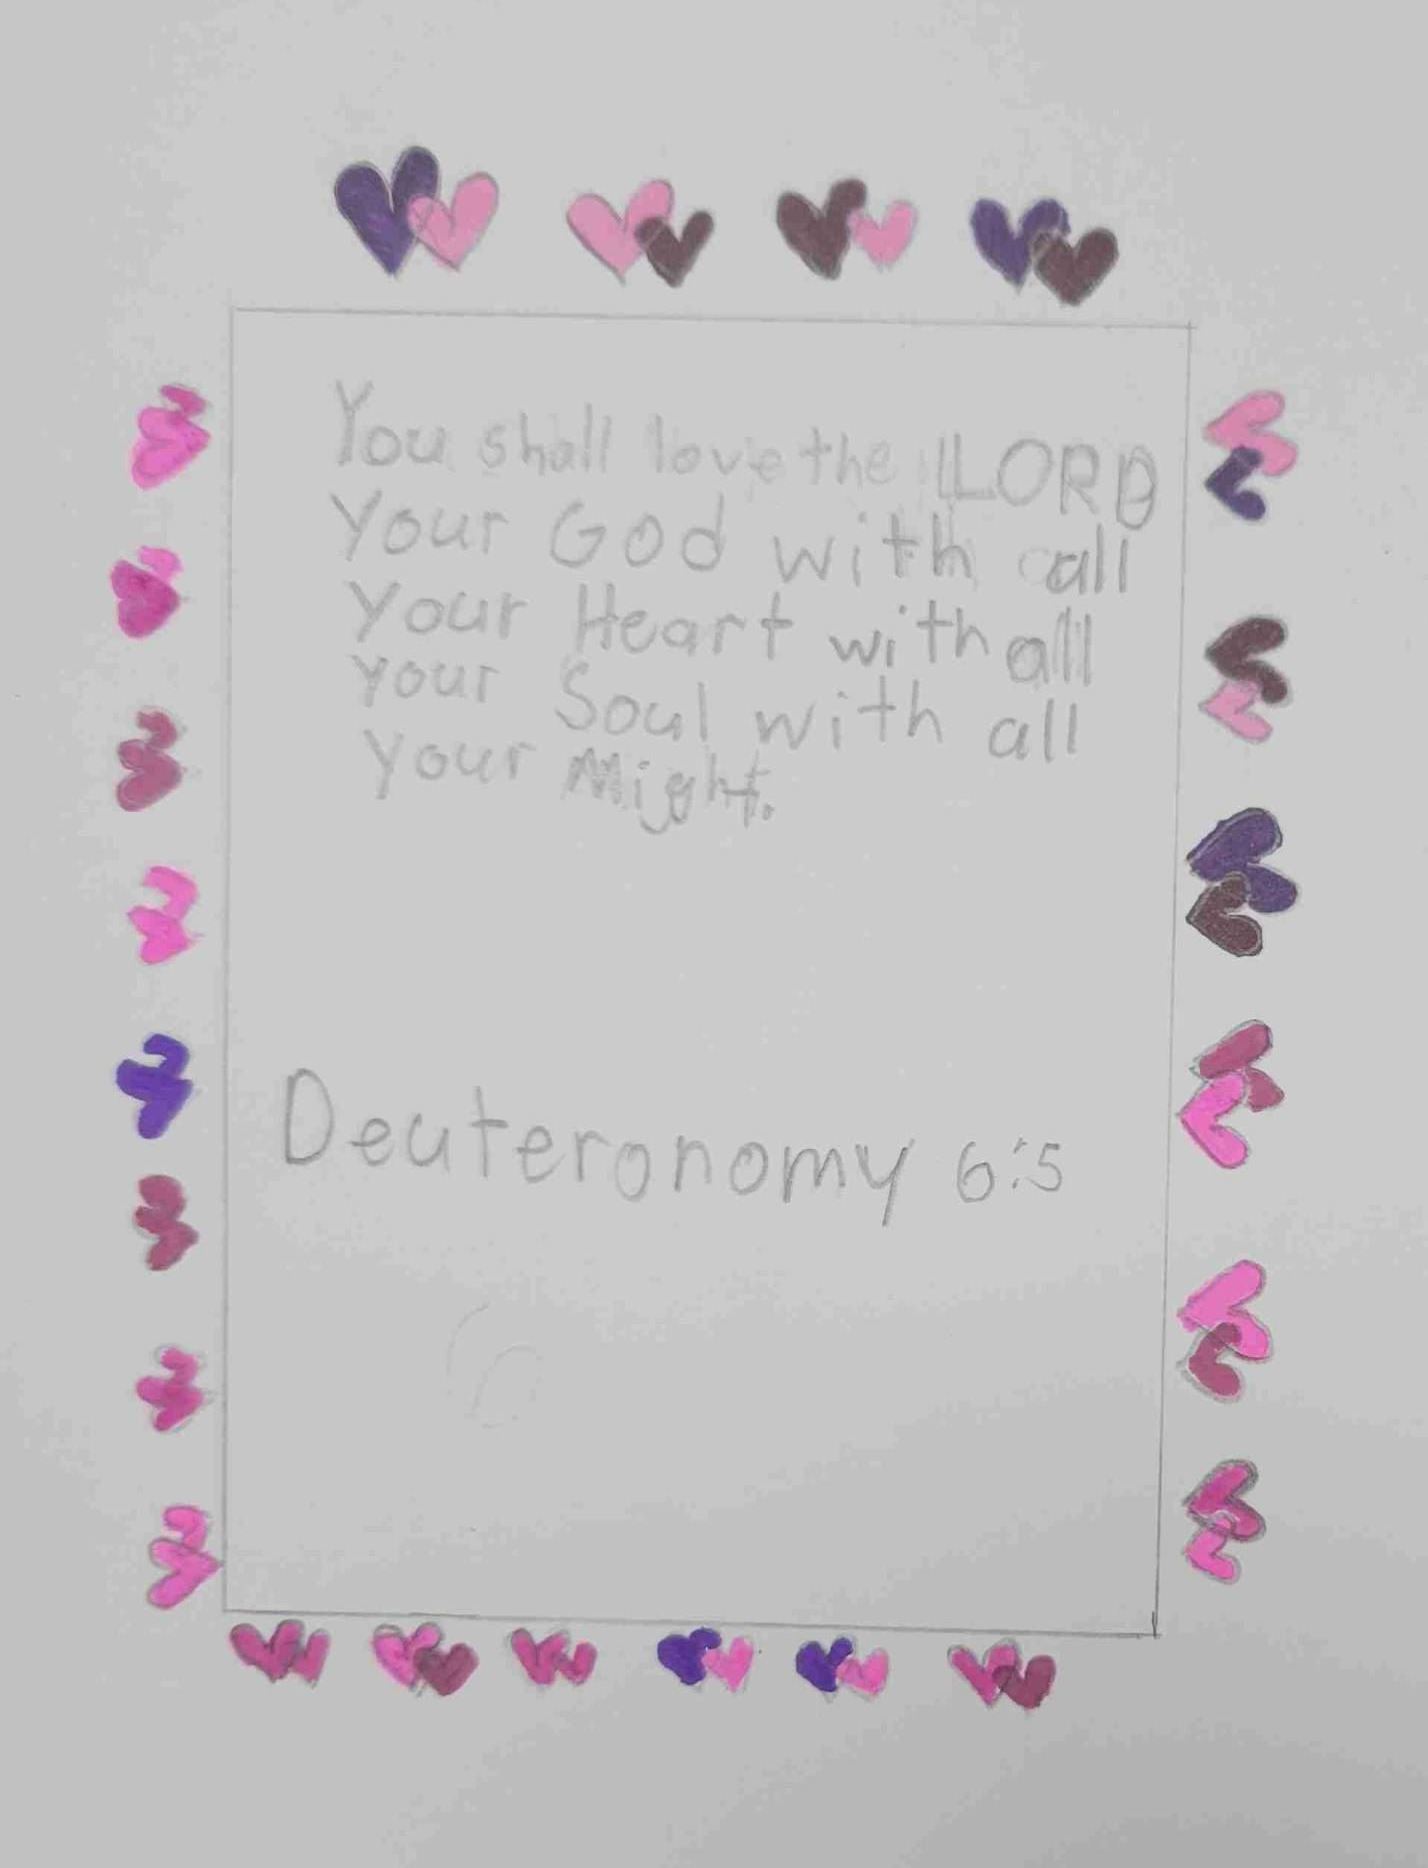 You shall love the LORD
your God with all
your Heart with all
your Soul with all
your Might.
Deuteronomy 6:5